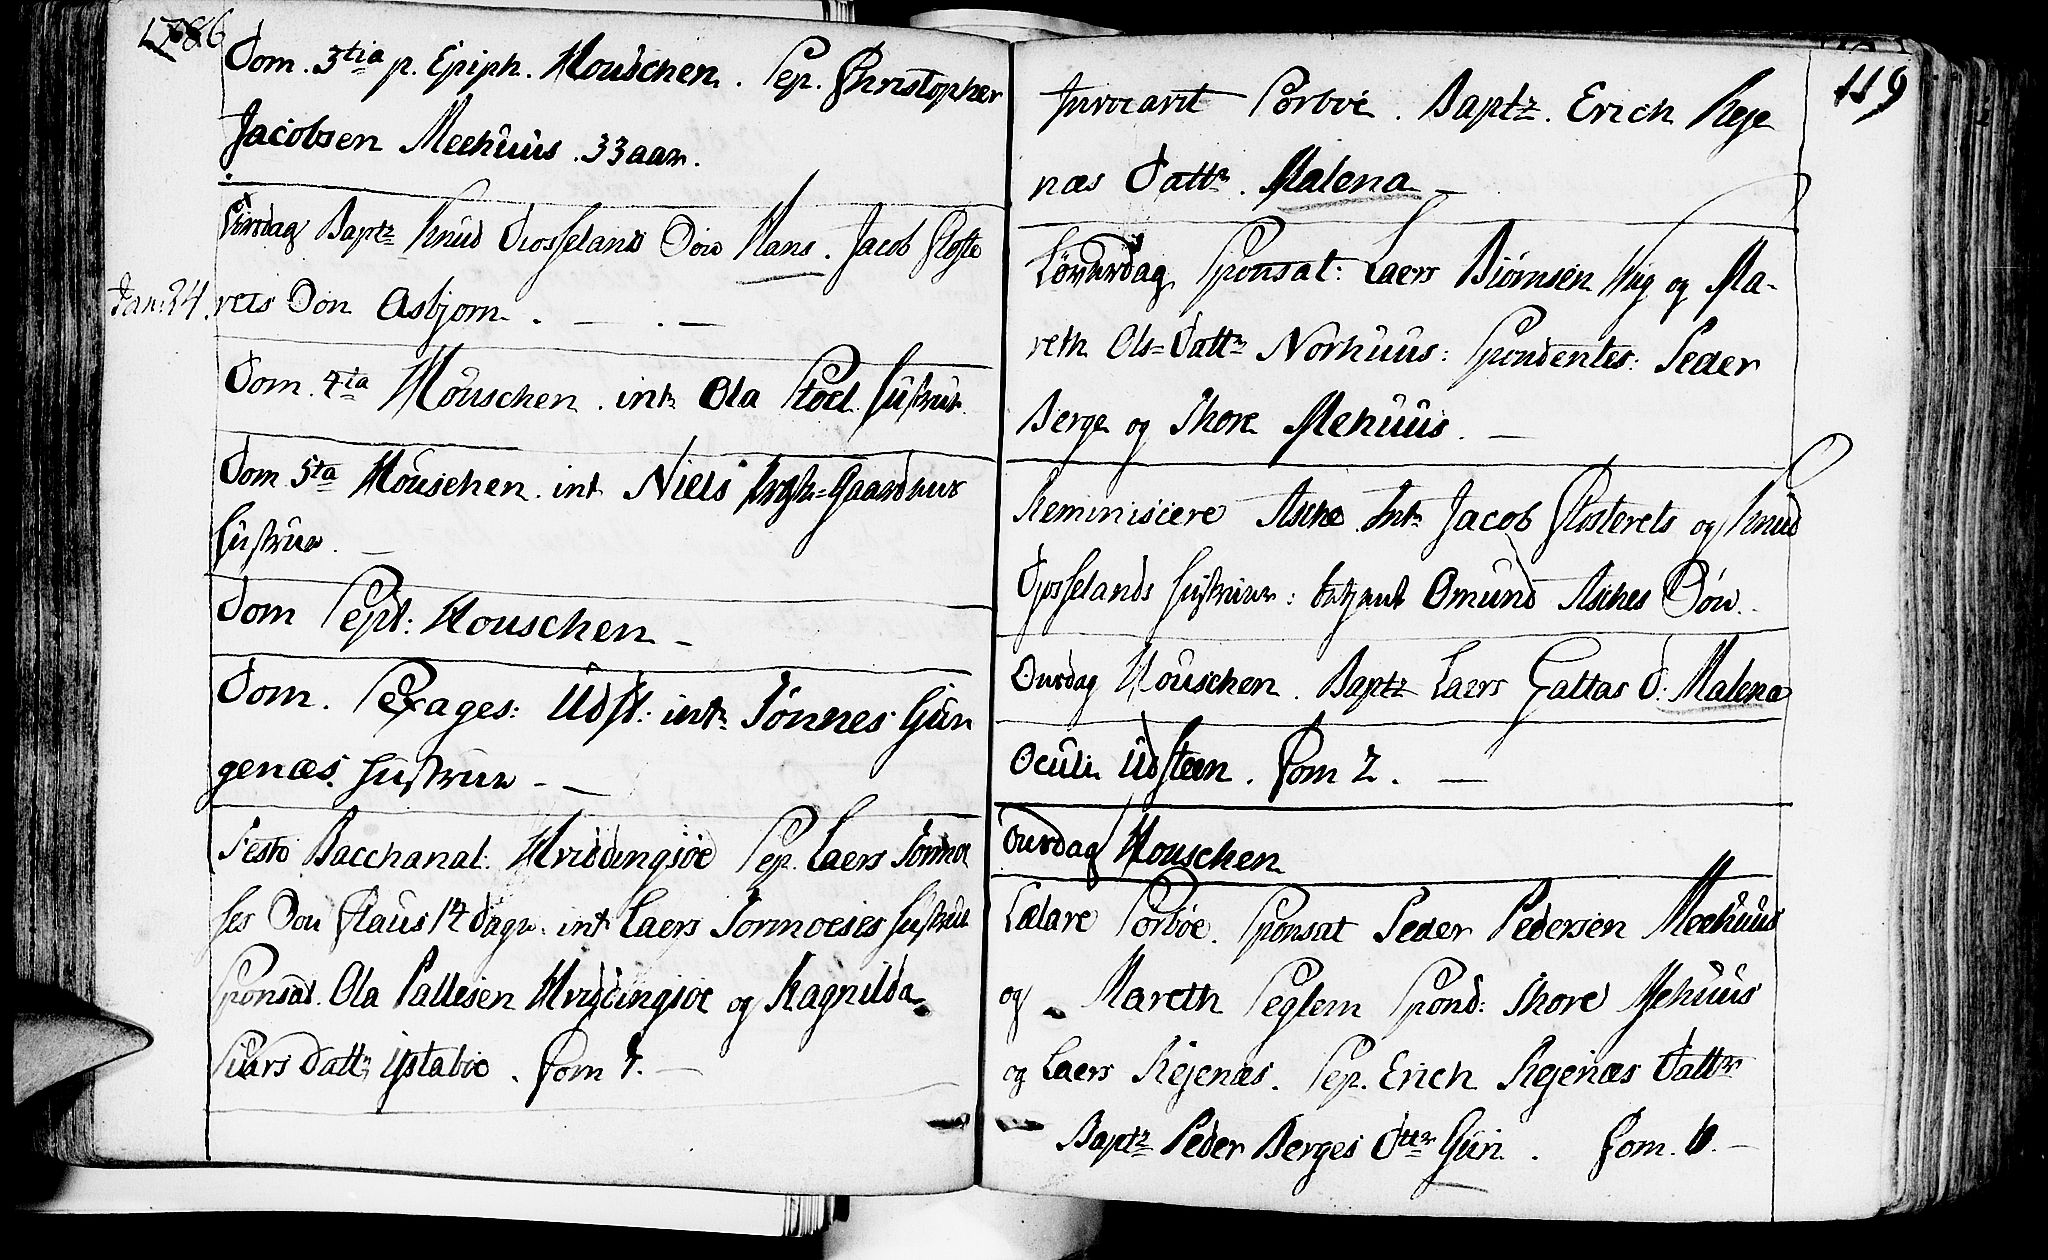 1786
Dom. 3tia p. Epiph. Mouschen. Sep. Christopher
Jacobsen Meehuus. 33 aar.
Tiirsdag Baptz Knud Diosseland Søn Hans. Jacob Closte
Jan: 24. rets Søn Asbjorn.
Dom. 4ta Mouschen. intr. Ola Stoel hustrue
Dom 5ta Mouschen. int. Niels Gaardnur
hustrue.
Dom Sept: Mouschen
Dom. Sexages: Udst: intr. Tönnes Gun
genæs hustrue
Festo Bacchanal: Hviddingsöe Sep. Laers Tormoe
ses Søn Claus 14 dage. intr Laers Tormoeses hustrue
Sponsat. Ola Pallesen Hviddingsöe og Ragnilda
Siurs Dattr Ystabøe. Com 7.
119
Invocavit Sørbøe. Baptz. Erich Reje
næs Dattr. Malena
Löverdag Sponsat: Laers Biørnsen Wig og Ma-
reth Ols=Dattr Norhuus: Spondentes: Peder
Berge og Thore Mehuus.
Reminiscere Aske Intr. Jacob Closterets og Knud
Djosselands hustruer: Omund Askes Søn.
Onsdag Mouschen. Baptz Laers Galtas D: Malena
Oculi Udsteen. Com 2.
Onsdag Mouschen
Lætare Sørbøe. Sponsat Peder Pedersen Meehuus
og Mareth Seglem Spond: Thore Mehuus
og Laers Rejenæs. Sep. Erich Rejenæs Dattr
Baptz Peder Berges Dttr Guri. Com. 6.